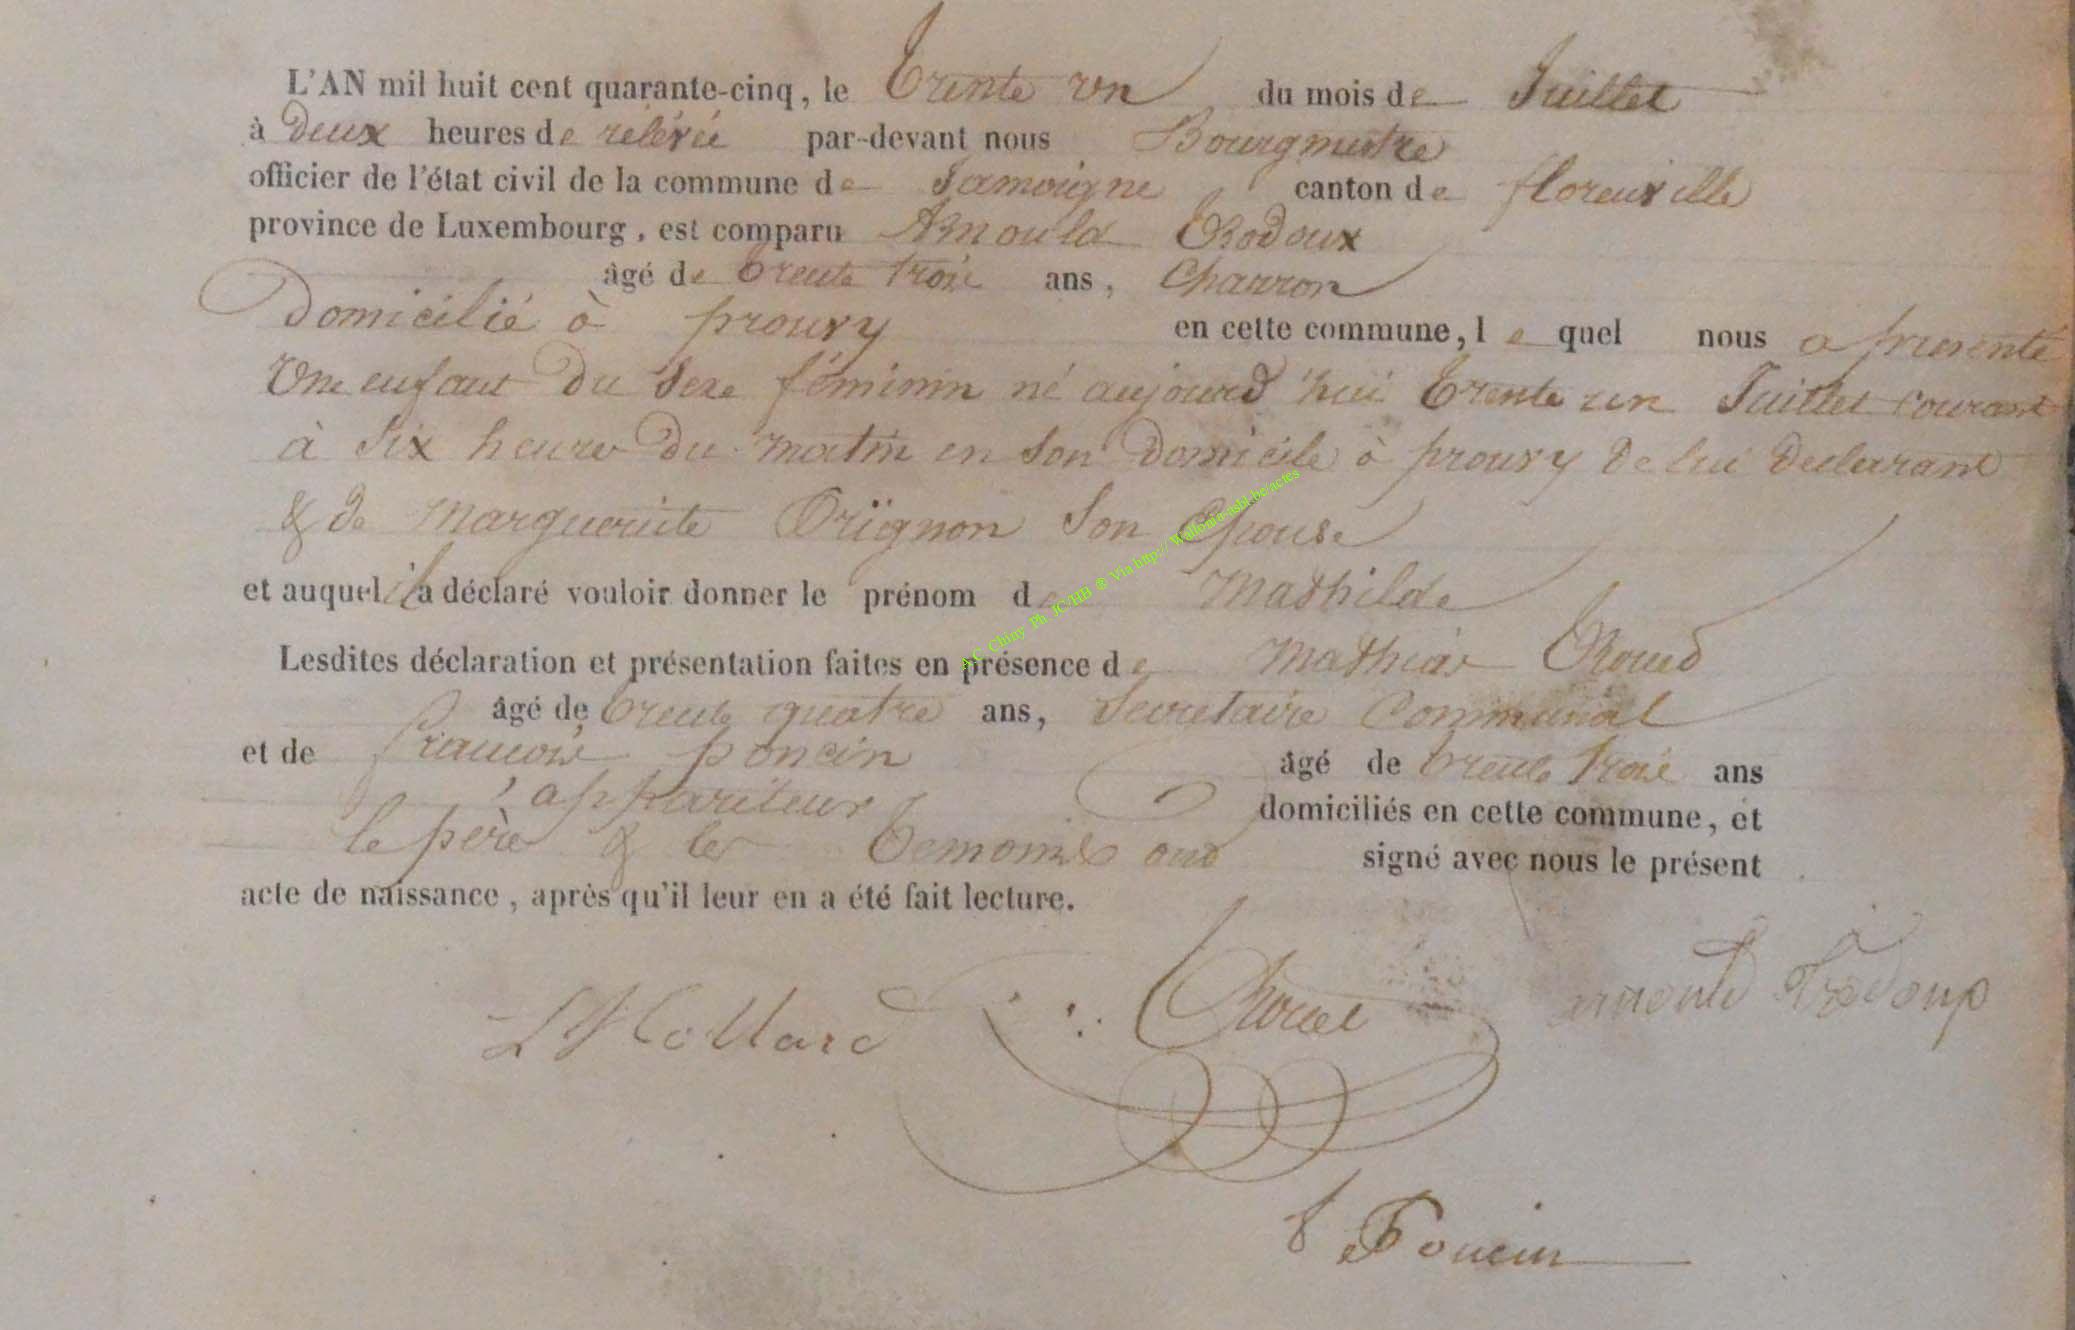 L'AN mil huit cent quarante-cinq, le Trente un du mois de Juillet
à Deux heures de relévée par-devant nous Bourgmestre
officier de l'état civil de la commune de Jamoigne canton de florenville
province de Luxembourg, est comparu Arnould Rodoux
âgé de trente trois ans, Charron
Domicilié à prouvy en cette commune, le quel nous a présenté
Une enfant Du Sexe féminin né aujourd'hui trente un Juillet courant
à Six heures Du matin en Son Domicile à prouvy De lui Déclarant
& de Marguerite Orignon Son Epouse
et auquel il a déclaré vouloir donner le prénom de Mathilde
Lesdites déclaration et présentation faites en présence de Mathias
âgé de trente quatre ans, Secretaire Communal
et de françois poncin âgé de trente trois ans
appariteur domiciliés en cette commune, et
le père & les témoins ont signé avec nous le présent
acte de naissance, après qu'il leur en a été fait lecture.
Hollard
arnould
Poncin
A.C. Chiny Ph. JC/HB ® Via http://Wallonia-asbl.be/actes